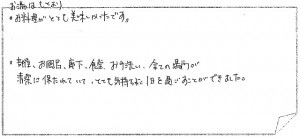 ・お料理がとても美味しかったです。
・部屋、お風呂、廊下、食堂、お手洗い、全ての場所が
清潔に保たれていて、とても気持ちよく1日を過ごすことができました。